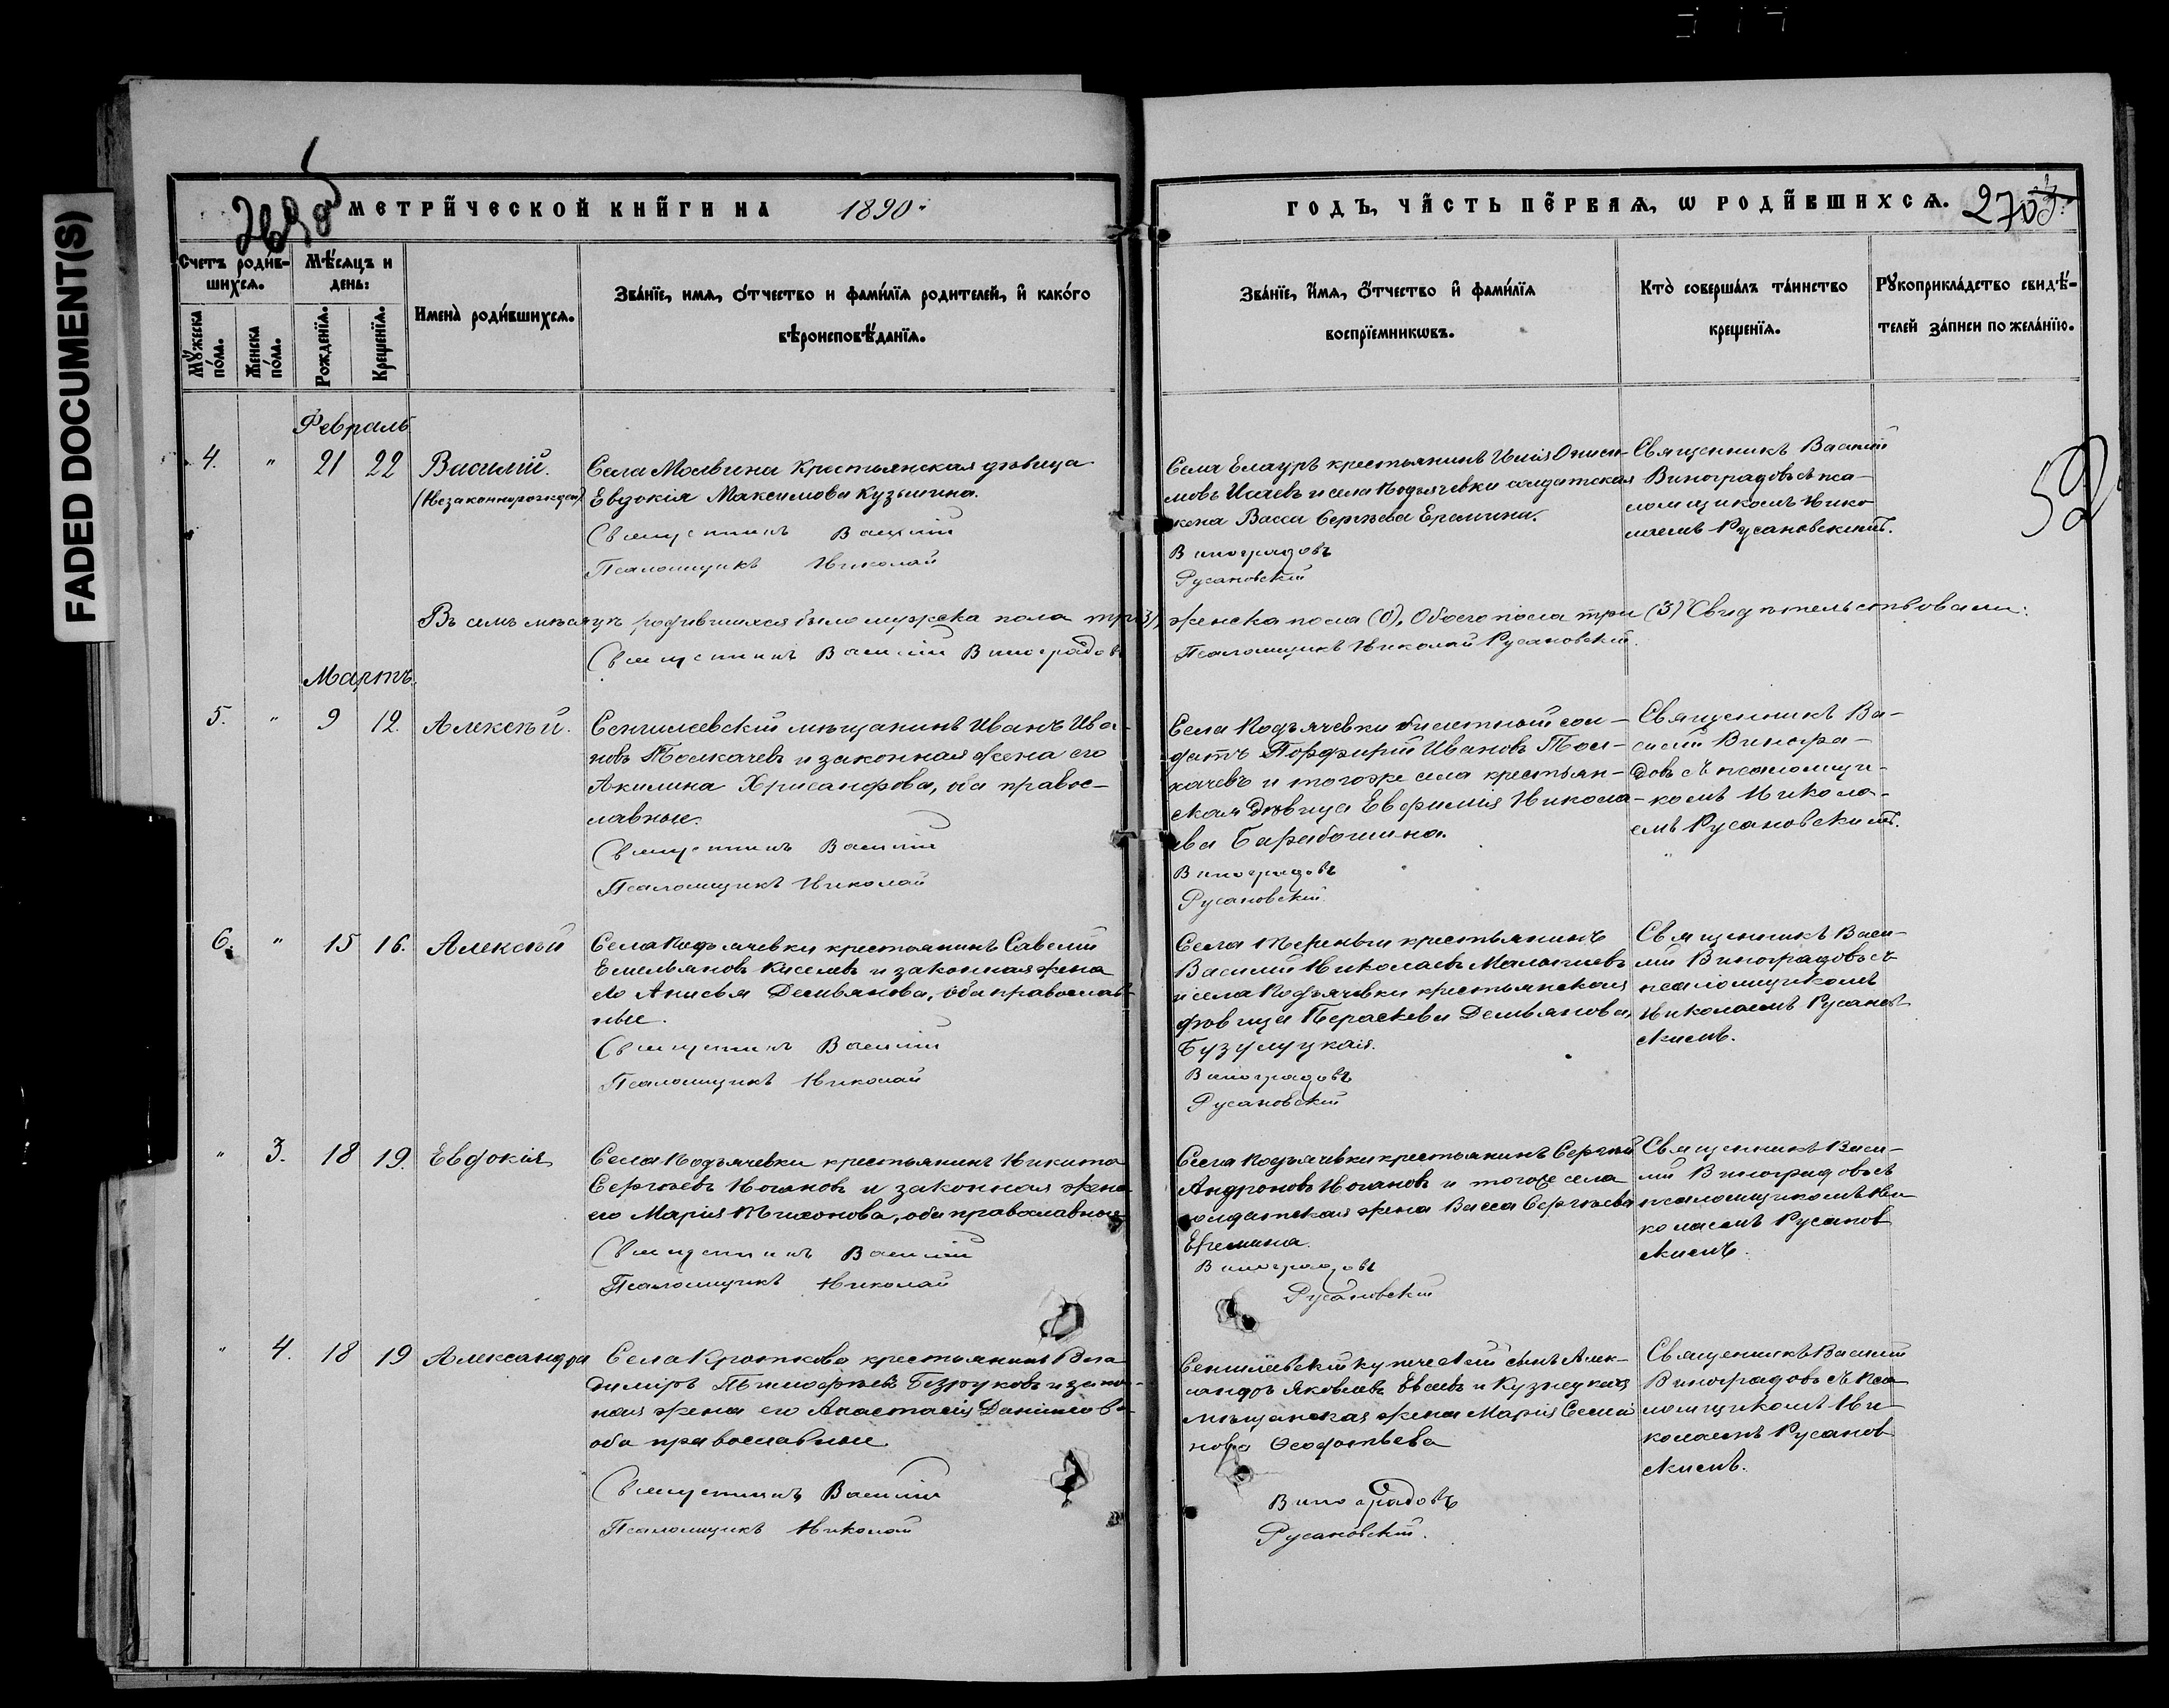 FADED DOCUMENT(S)
МЕТРИ́ЧЕСКОЙ КНИ́ГИ НА 1890.
ГОДЪ, ЧА́СТЬ ПЕ́РВАЯ, Ѡ РОДИ́ВШИХСЯ.
Счетъ роди́в-
шихся.
Мѣ́сяцъ и
день:
Имена̀ роди́вшихся.
Зва́нїе, имя, о́тчество и фами́лїя родителей, и҆ како́го
вѣроисповѣ́данїя.
Зва́нїе, и҆́мя, о҆́тчество и҆ фами́лїя
воспрїемникѡвъ.
Кто̀ соверша́лъ та́инство
креще́нїя.
Рꙋкоприкла́дство свидѣ́-
телей за́писи по жела́нїю.
Мꙋ́жеска
по́ла.
Же́нска
по́ла.
Рожде́нїя.
Креще́нїя.
52
Февраль
4. " 21 22 Василій.
(Незаконнорожден)
Села Молвина крестьянская дѣвица
Евдокія Максимова Кузьмина.
Священникъ Василій
Псаломщикъ Николай
Села Елауръ крестьянинъ Илія Ониси-
мовъ Исаевъ и села Подъячевки солдатская
жена Васса Сергѣева Еремина.
Виноградовъ
Русановскій
Священникъ Василій
Виноградовъ съ пса-
ломщикомъ Нико
лаемъ Русановскимъ.
Въ семъ мѣсяцѣ родившихся было мужска пола три (3), женска пола (0), Обоего пола три (3) Свидѣтельствовали:
Священникъ Василій Виноградовъ
Псаломщикъ Николай Русановскій.
Мартъ.
5. " 9 12. Алексѣй.
Сенгилеевскій мѣщанинъ Иванъ Ива-
новъ Толкачевъ и законная жена его
Акилина Хрисанфова, оба правос-
лавные.
Священникъ Василій
Псаломщикъ Николай
Села Подъячевки билетный сол-
датъ Порфирій Ивановъ Тол-
качевъ и того же села крестьян-
ская дѣвица Евфимія Никола-
ева Барабошина.
Виноградовъ
Русановскій
Священникъ Ва-
силій Виногра-
довъ съ псаломщи-
комъ Никола-
емъ Русановскимъ.
6. " 15 16. Алексѣй
Села Подъячевки крестьянинъ Савелій
Емельяновъ Киселевъ и законная жена
его Анисья Демьянова, оба православ-
ные.
Священникъ Василій
Псаломщикъ Николай
Села Тереньги крестьянинъ
Василій Николаевъ Малышевъ
и села Подъячевки крестьянская
дѣвица Параскева Демьянова
Бузулуцкая.
Виноградовъ
Русановскій
Священникъ Васи-
лій Виноградовъ съ
псаломщикомъ
Николаемъ Русанов-
скимъ.
" 3. 18 19. Евдокія
Села Подъячевки крестьянинъ Никита
Сергѣевъ Ногановъ и законная жена
его Марія Тихонова, оба православные
Священникъ Василій
Псаломщикъ Николай
Села Подъячевки крестьянинъ Сергѣй
Андроновъ Ногановъ и тогоже села
солдатская жена Васса Сергѣева
Еремина.
Виноградовъ
Русановскій
Священникъ Васи-
лій Виноградовъ съ
псаломщикомъ Ни
колаемъ Русанов
скимъ.
" 4. 18 19 Александра
Села Кроткова крестьянинъ Вла
диміръ Тимофѣевъ Безруковъ и закон-
ная жена его Анастасія Данилова
оба православные
Священникъ Василій
Псаломщикъ Николай
Сенгилевскій купеческій сынъ Алек-
сандръ Яковлевъ Евсевъ и Кузнецкая
мѣщанская жена Марія Семе
нова Ѳеофантьева
Виноградовъ
Русановскій.
Священникъ Василій
Виноградовъ съ пса
ломщикомъ Ни
колаемъ Русанов
скимъ.